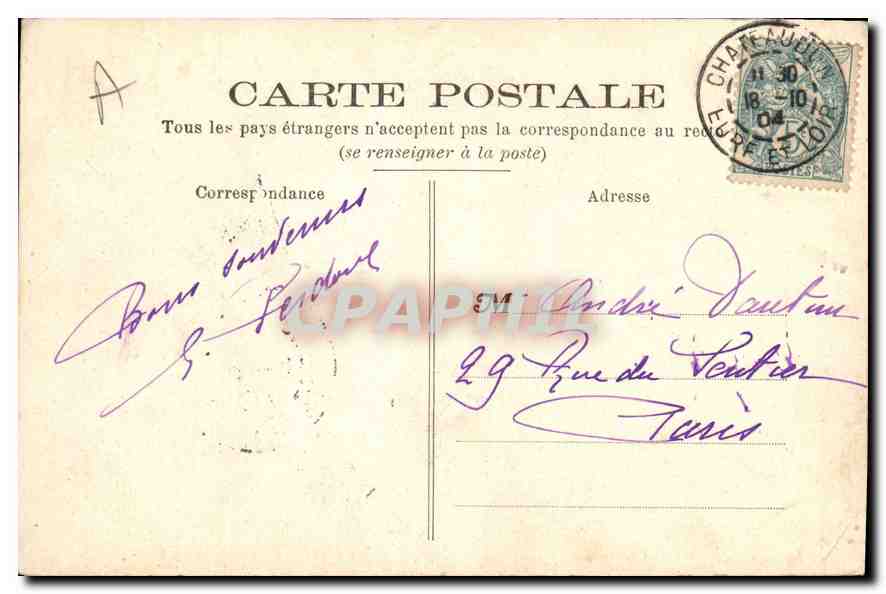 A
CARTE POSTALE
Tous les pays étrangers n'acceptent pas la correspondance au recto
(se renseigner à la poste)
CHATEAUDUN
11 30
18 -10
04
EURE ET LOIR
5
POSTES
Correspondance
Adresse
Bons souvenirs
E.
M. André
29 Rue du Sentier
Paris
CPAPHIL